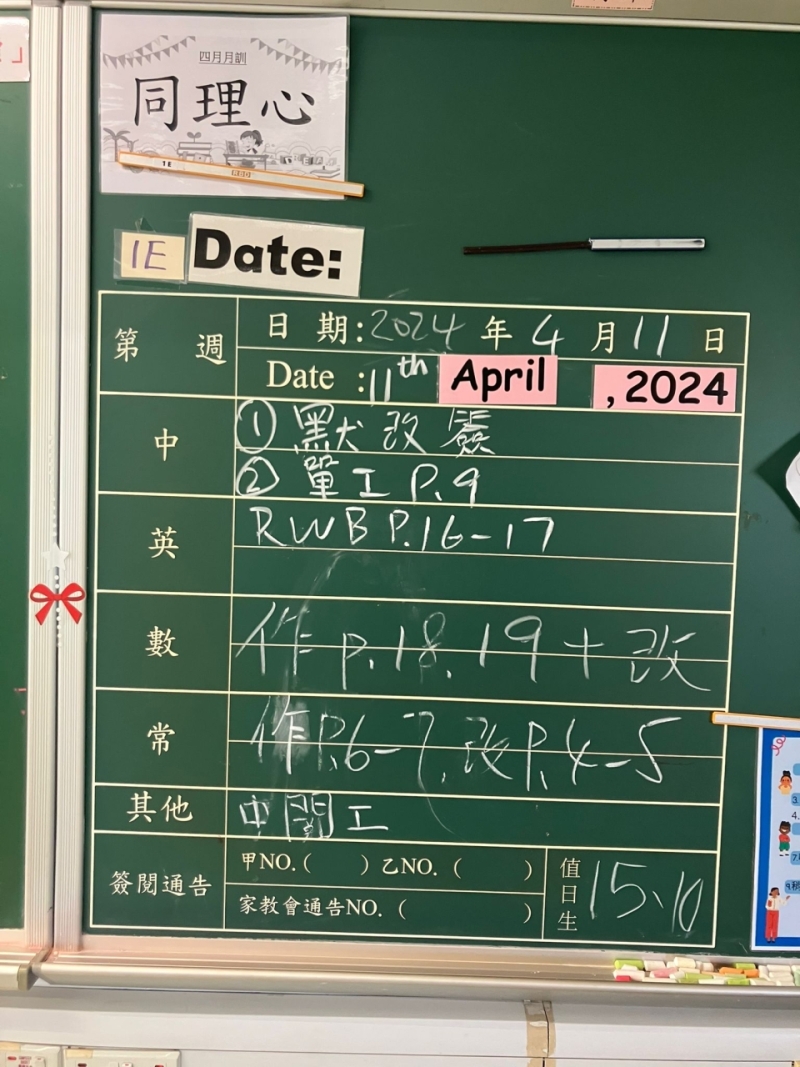 四月月訓
同理心
1E
1E
Date:
第 週
日 期:2024 年 4 月 11 日
Date :11th April , 2024
中
① 默改簽
② 單工 P.9
英
RWB P.16-17
數
作 p.18. 19 + 改
常
作P.6-7. 改P.4-5
其他
中閱工
簽閱通告
甲NO.( ) 乙NO. ( )
家教會通告NO. ( )
值日生
15、10